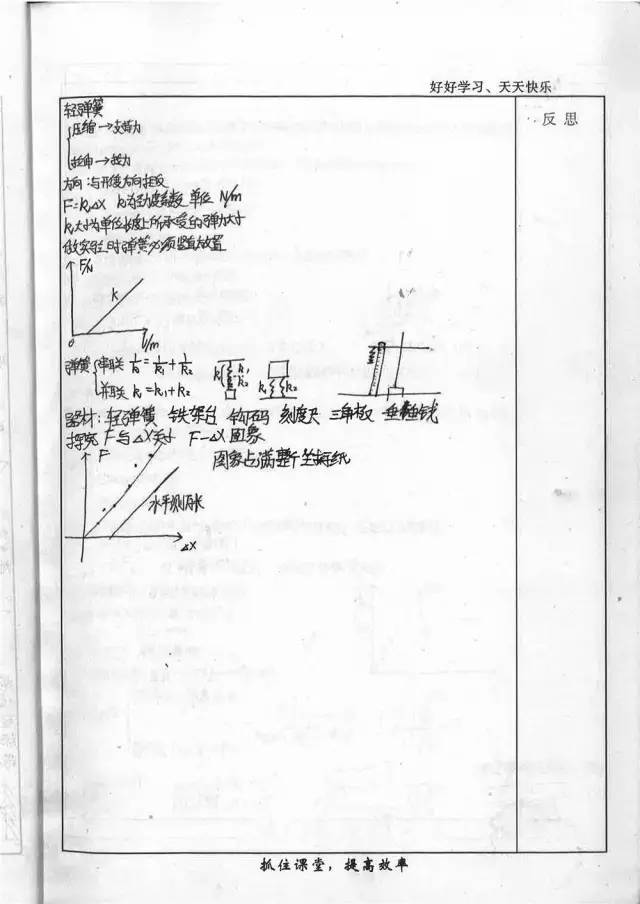 好好学习、天天快乐
反思
轻弹簧
压缩→支持力
拉伸→拉力
方向:与形变方向相反
F=k△X k为劲度系数 单位 N/m
k大小为单位长度上所承受的弹力大小
做实验时弹簧必须竖直放置
F/N
k
0 l/m
弹簧 串联 1/k=1/k1+1/k2
并联 k=k1+k2
k k1 k2
k1 k2
器材:轻弹簧 铁架台 钩码 刻度尺 三角板 重垂线
探究F与△X关系 F-△X图象
F
图象占满整个坐标纸
水平测原长
△X
抓住课堂,提高效率